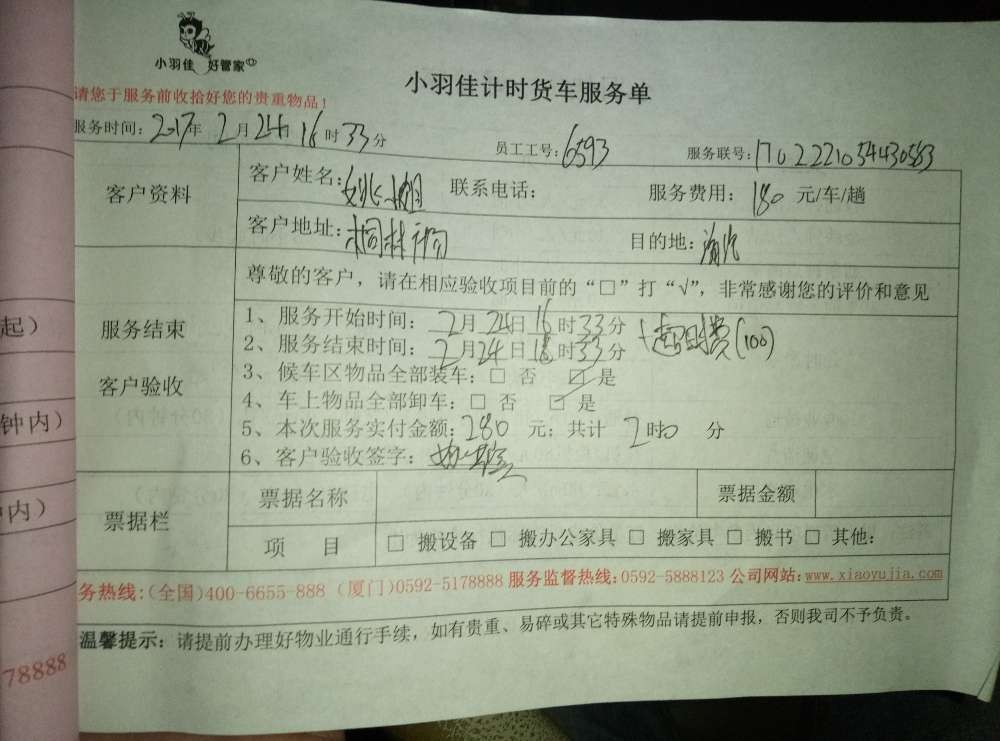 小羽佳 好管家
小羽佳计时货车服务单
请您于服务前收拾好您的贵重物品！
服务时间：2017年 2月 24日 16时 33分 员工工号：6593 服务联号：1702221054430583
客户资料
客户姓名：姚小姐 联系电话： 服务费用：180 元/车/趟
客户地址： 目的地：
服务结束
客户验收
尊敬的客户，请在相应验收项目前的“□”打“√”，非常感谢您的评价和意见
1、服务开始时间：2月24日16时33分 +超时费(100)
2、服务结束时间：2月24日18时33分
3、候车区物品全部装车：□ 否 ☑ 是
4、车上物品全部卸车：□ 否 ☑ 是
5、本次服务实付金额：280 元；共计 2时0 分
6、客户验收签字：
票据栏
票据名称 票据金额
项 目 □ 搬设备 □ 搬办公家具 □ 搬家具 □ 搬书 □ 其他：
务热线：(全国)400-6655-888 (厦门)0592-5178888 服务监督热线：0592-5888123 公司网站：www.xiaoyujia.com
温馨提示：请提前办理好物业通行手续，如有贵重、易碎或其它特殊物品请提前申报，否则我司不予负责。
起）
钟内）
内）
78888